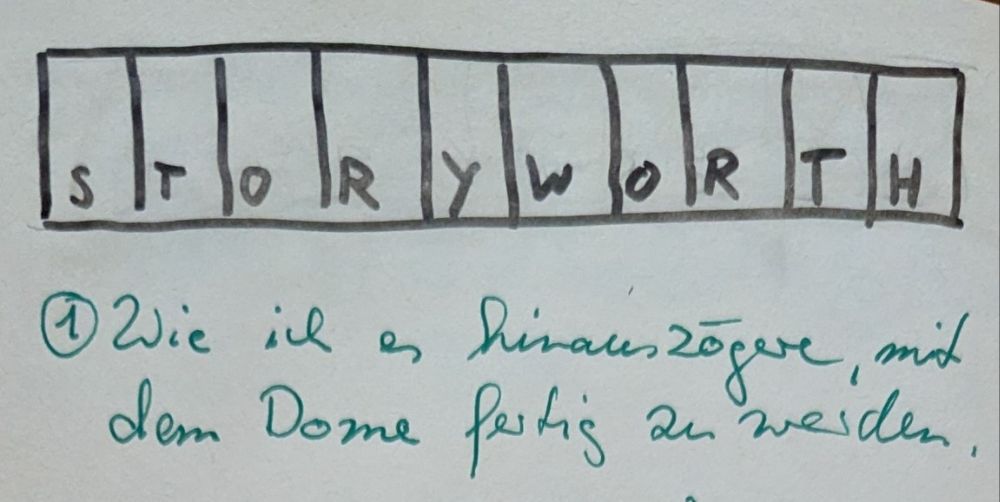 STORYWORTH
① Wie ich es hinauszögere, mit
dem Dome fertig zu werden.